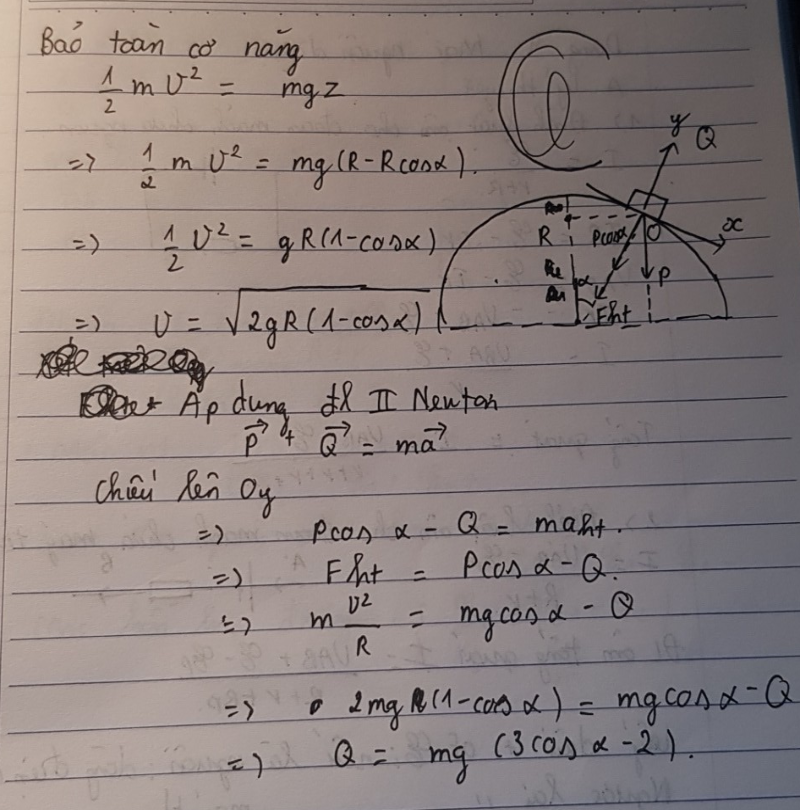 Bảo toàn cơ năng
1/2 m v² = mgz
=> 1/2 m v² = mg(R-Rcosα).
=> 1/2 v² = gR(1-cosα)
=> v = √2gR(1-cosα)
y
Q
x
R
Pcosα
O
α
P
Fht
Áp dụng đl II Newton
P⃗ + Q⃗ = ma⃗
Chiếu lên Oy
=> Pcos α - Q = maht.
=> Fht = Pcos α - Q.
=> m v²/R = mgcosα - Q
=> 2mg(1-cosα) = mgcosα - Q
=> Q = mg (3cosα-2).